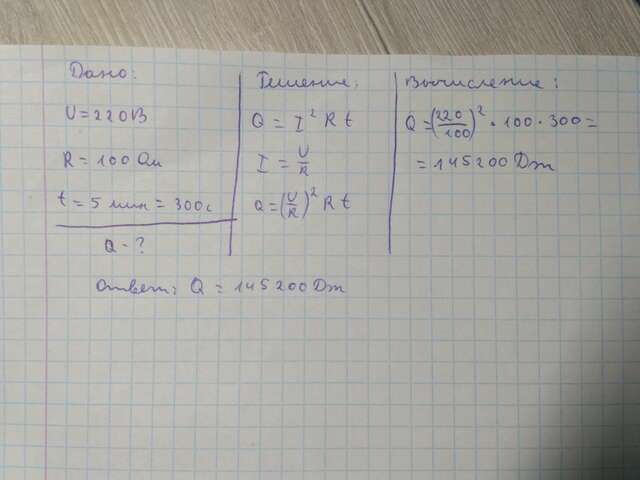 Дано:
U = 220В
R = 100 Ом
t = 5 мин = 300с
Q - ?
Решение:
Q = I² R t
I = U/R
Q = (U/R)² R t
Вычисление:
Q = (220/100)² · 100 · 300 =
= 145200 Дж
Ответ: Q = 145200 Дж